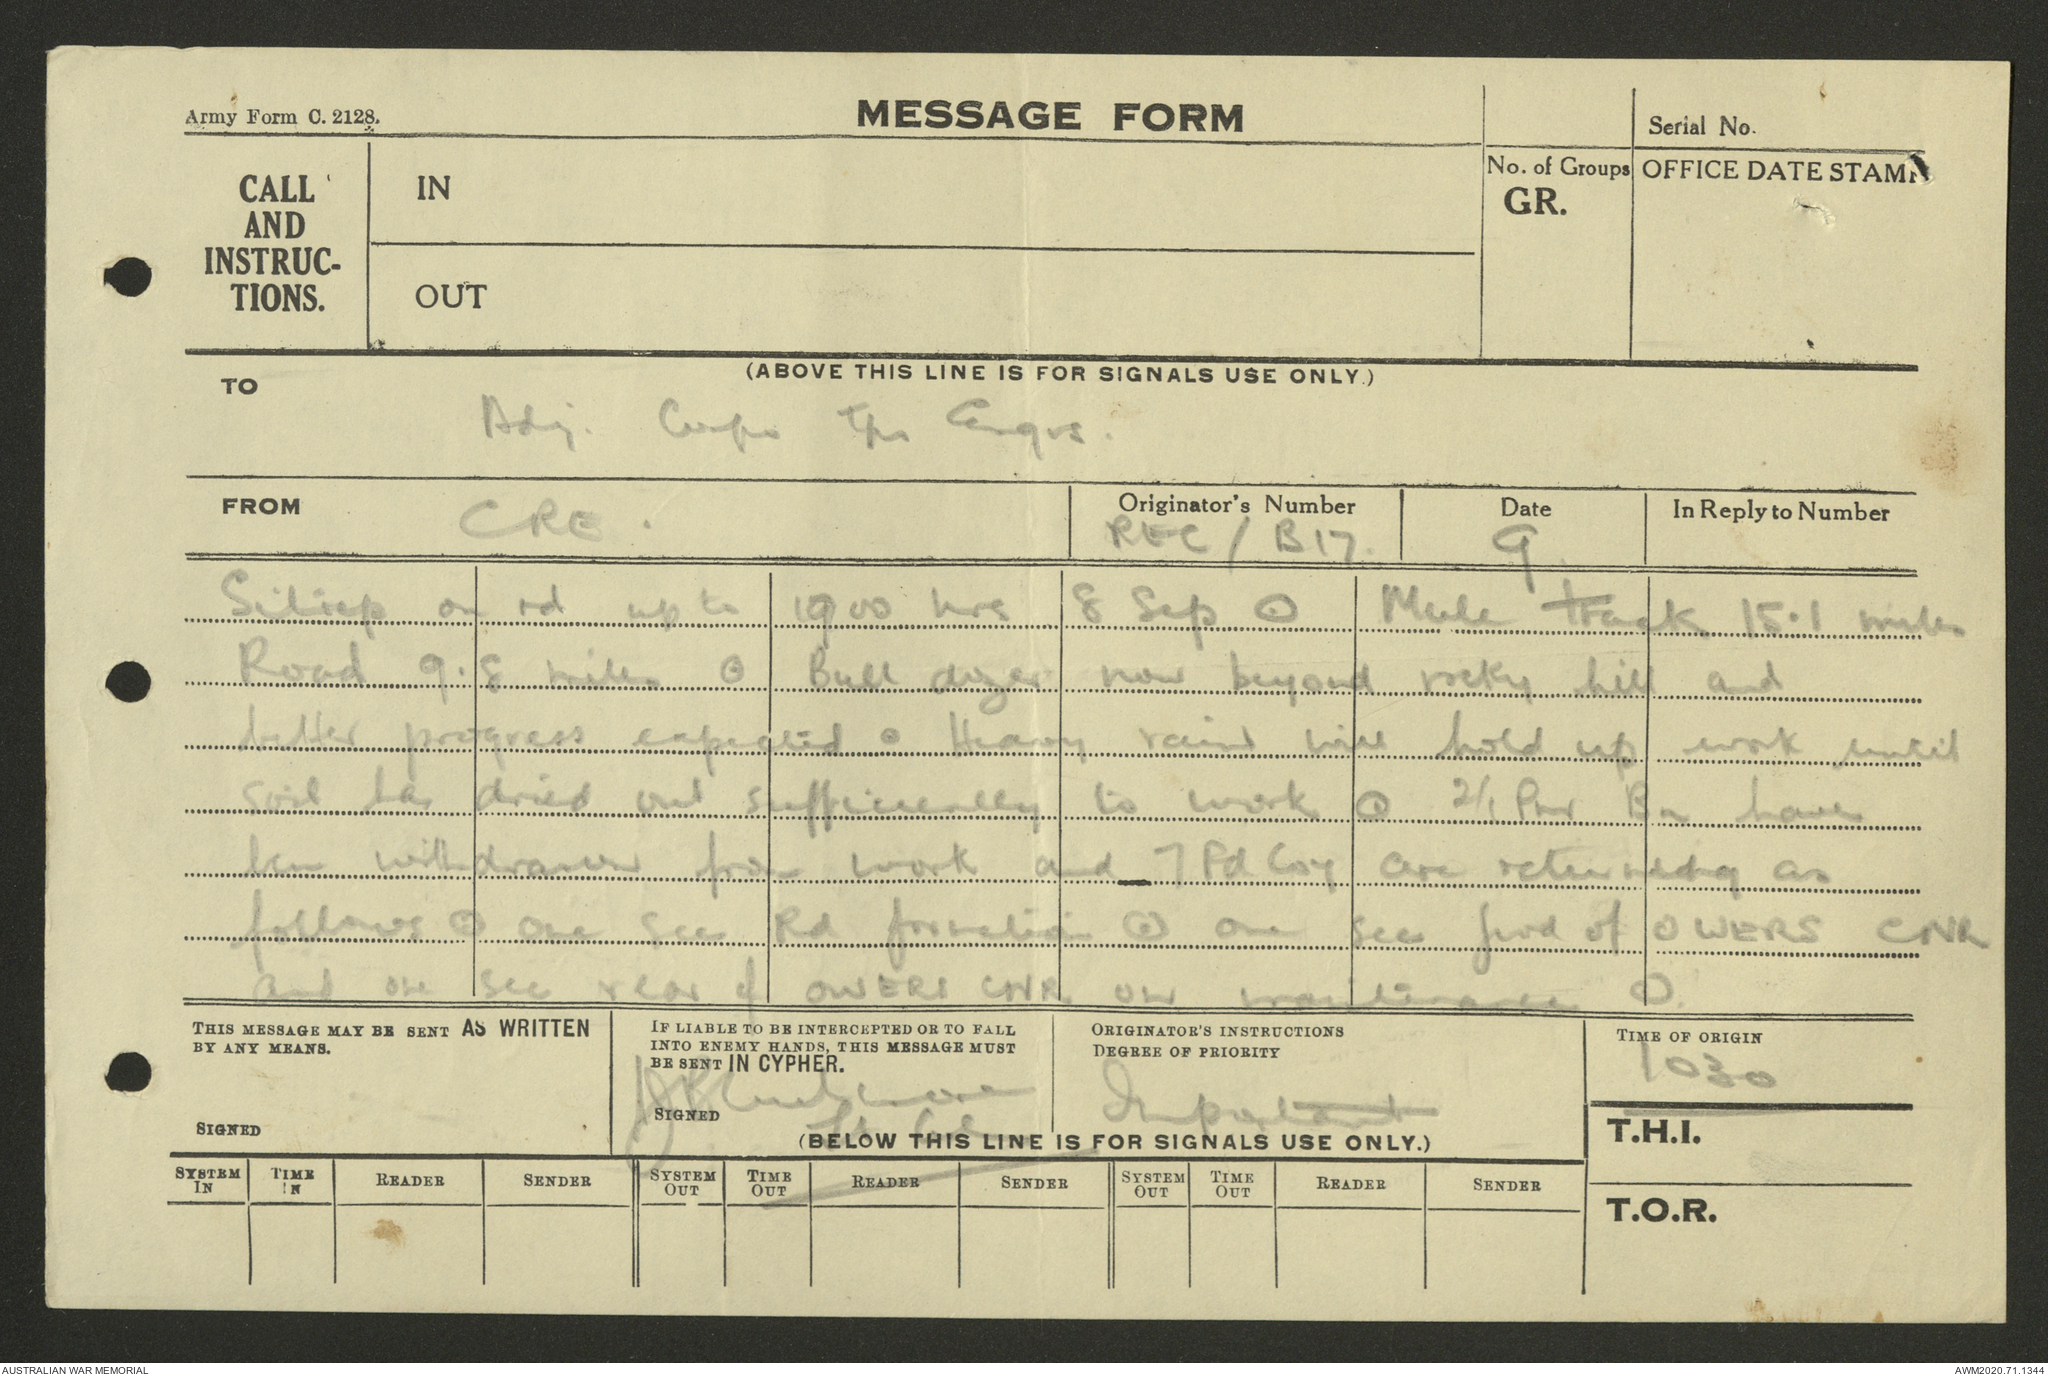 Army Form C. 2128.
MESSAGE FORM
Serial No.
CALL AND INSTRUC-TIONS.
IN
OUT
No. of Groups
GR.
OFFICE DATE STAMP
(ABOVE THIS LINE IS FOR SIGNALS USE ONLY.)
TO
Adj. Corps Tps Engrs.
FROM
CRE.
Originator's Number
REC/B17.
Date
9
In Reply to Number
Sitrep on rd up to 1900 hrs 8 Sep ⊙ Mule track 15.1 miles
Road 9.8 miles ⊙ Bull dozer now beyond rocky hill and
better progress expected ⊙ Heavy rain will hold up work until
soil has dried out sufficiently to work ⊙ 2/1 Pnr Bn have
been withdrawn from work and 7 Fd Coy are returning as
follows ⊙ one sec Rd formation ⊙ one sec fwd of OWERS CNR
and one sec rear of OWERS CNR on maintenance ⊙
THIS MESSAGE MAY BE SENT AS WRITTEN
BY ANY MEANS.
SIGNED
IF LIABLE TO BE INTERCEPTED OR TO FALL
INTO ENEMY HANDS, THIS MESSAGE MUST
BE SENT IN CYPHER.
SIGNED
Lt Col
ORIGINATOR'S INSTRUCTIONS
DEGREE OF PRIORITY
Important
TIME OF ORIGIN
1030
T.H.I.
T.O.R.
(BELOW THIS LINE IS FOR SIGNALS USE ONLY.)
SYSTEM IN
TIME IN
READER
SENDER
SYSTEM OUT
TIME OUT
READER
SENDER
SYSTEM OUT
TIME OUT
READER
SENDER
AUSTRALIAN WAR MEMORIAL
AWM2020.71.1344